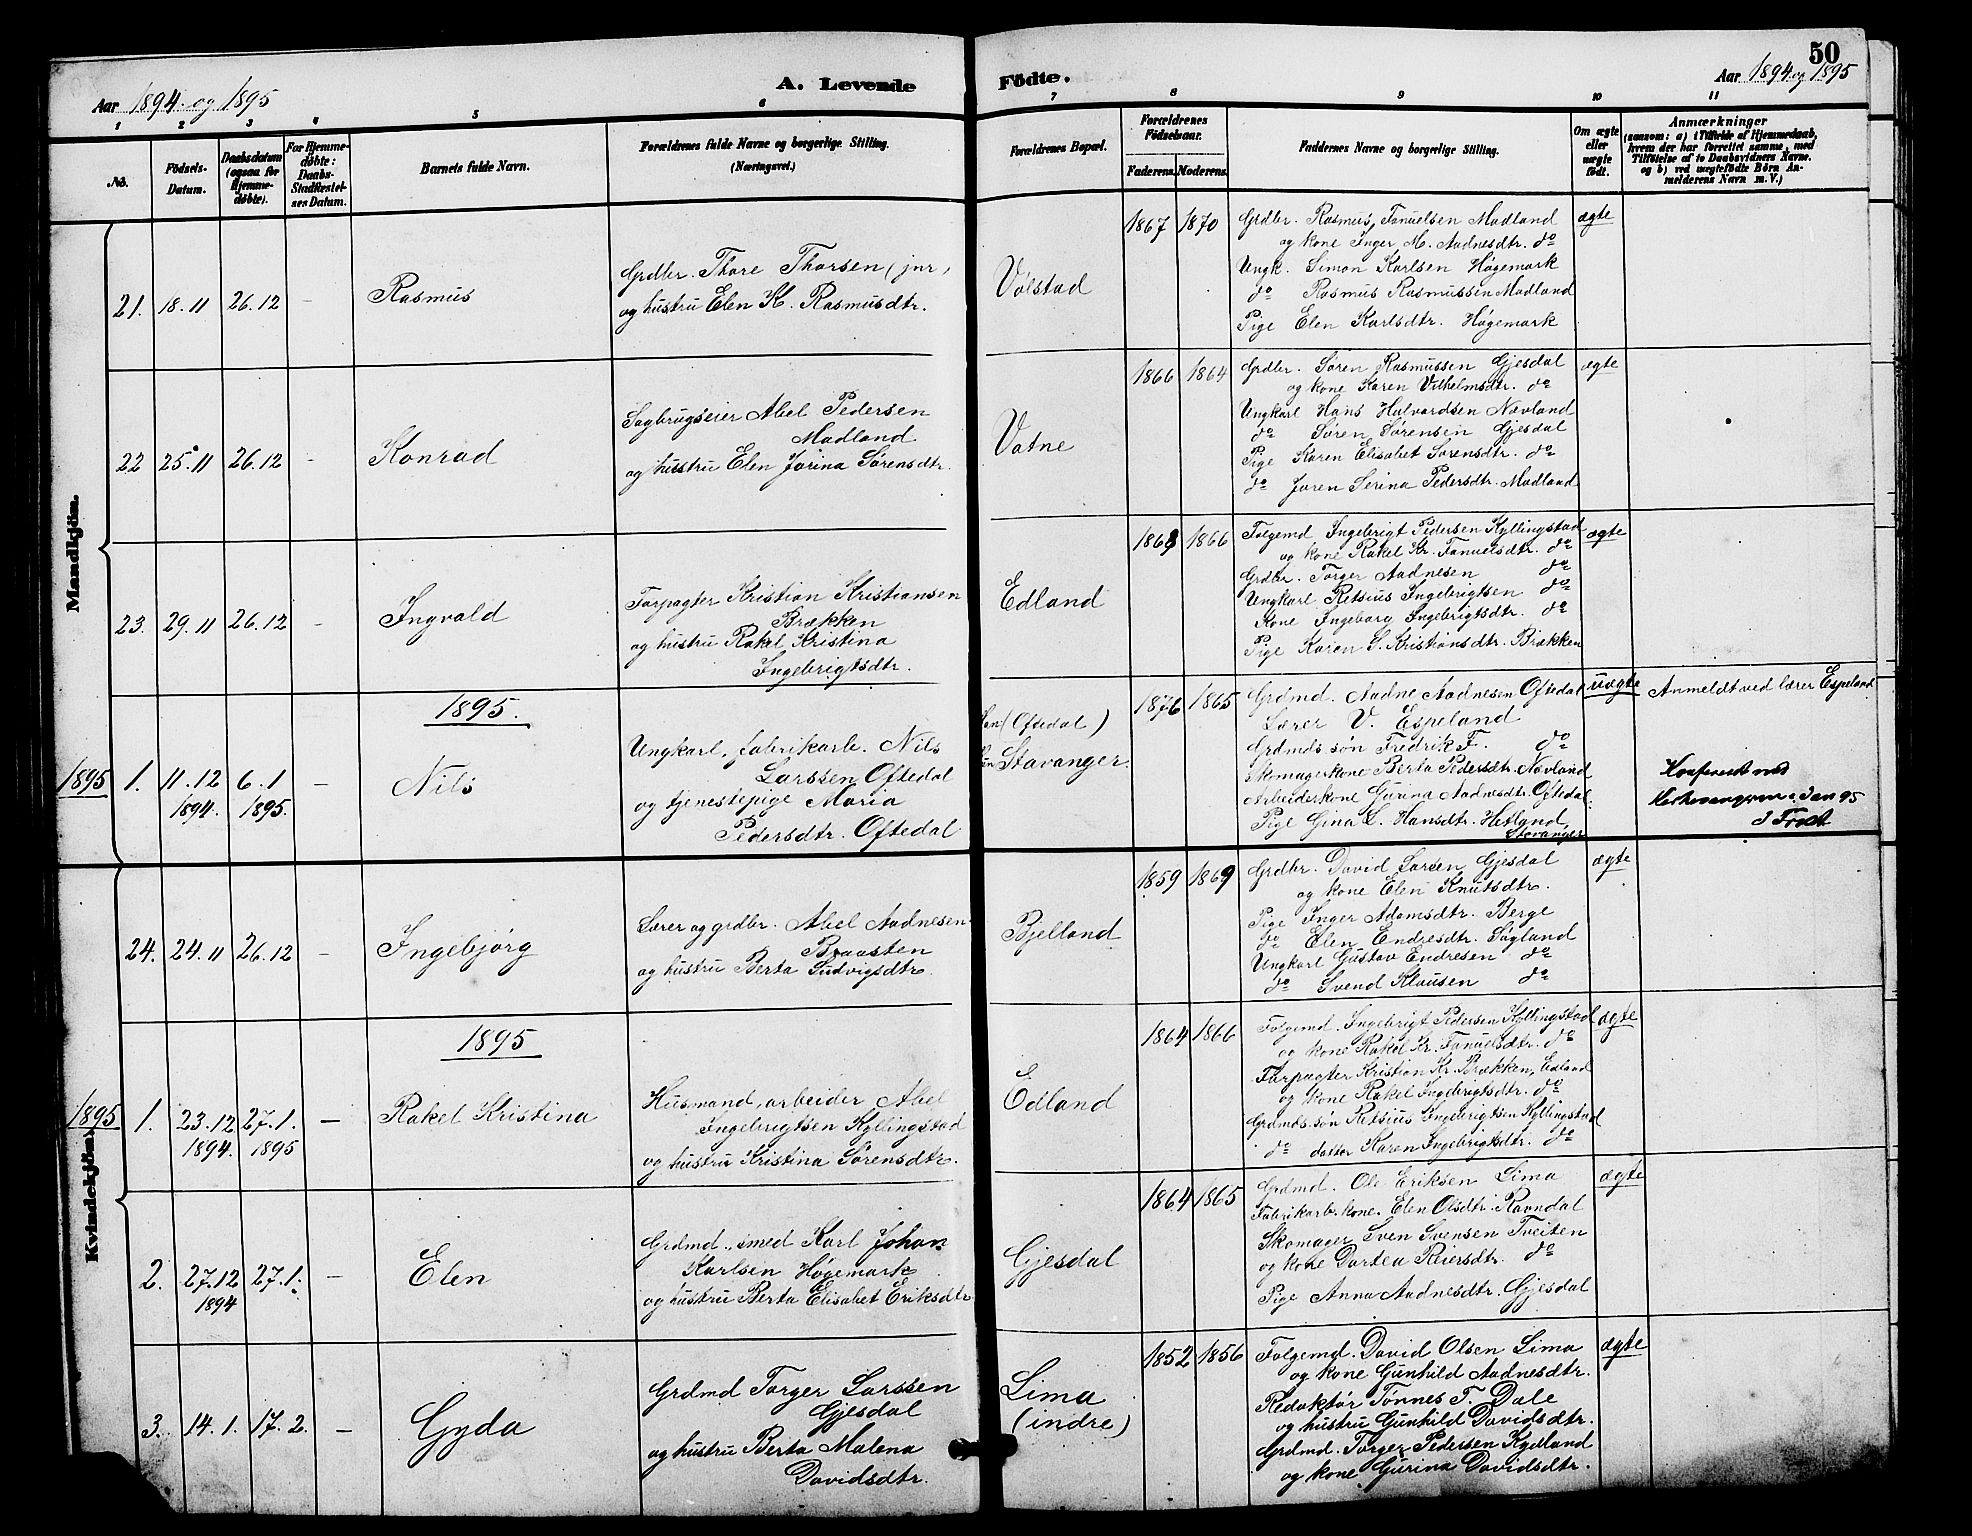 50
A. Levende
Födte.
Aar 1894 og 1895
Aar 1894 og 1895
1 2 3 4 5 6 7 8 9 10 11
No.
Födsels-
Datum.
Daabsdatum
(ogsaa for
Hjemme-
döbte).
For Hjemme-
döbte:
Daabs-
Stadfæstel-
ses Datum.
Barnets fulde Navn.
Forældrenes fulde Navne og borgerlige Stilling.
(Næringsvei.)
Forældrenes Bopæl.
Forældrenes
Födselsaar.
Faderens. Moderens.
Faddernes Navne og borgerlige Stilling.
Om ægte
eller
uægte
födt.
Anmærkninger
(saasom: a) i Tilfælde af Hjemmedaab,
hvem der har forrettet samme, med
Tilföielse af to Daabsvidners Navne.
og b) ved uægtefödte Börn An-
melderens Navn m. V.)
Mandkjön.
21. 18.11 26.12 –
Rasmus
Grdbr. Thore Thorsen (jnr)
og hustru Elen K. Rasmusdtr.
Vølstad
1867 1870
Grdbr. Rasmus Tanuelsen Madland
og kone Inger M. Aadnesdtr. do
Ungk. Simon Karlsen Høgemark
do Rasmus Rasmussen Madland
Pige Elen Karlsdtr. Høgemark
ægte
22 25.11 26.12 –
Konrad
Sagbrugseier Abel Pedersen
Madland
og hustru Elen Jorina Sørensdtr.
Vatne
1866 1864
Grdbr. Søren Rasmussen Gjesdal
og kone Karen Vilhelmsdtr. do
Ungkarl Hans Halvardsen Nævland
do Søren Sørensen Gjesdal
Pige Karen Elisabet Sørensdtr. do
do Joren Serina Pedersdtr. Madland
ægte
23. 29.11 26.12 –
Ingvald
Forpagter Kristian Kristiansen
Brækken
og hustru Rakel Kristina
Ingebrigtsdtr.
Edland
1868 1866
Folgemd Ingebrigt Pedersen Kyllingstad
og kone Rakel Kr. Tanuelsdtr. do
Grdbr. Torger Aadnesen do
Ungkarl Retsius Ingebrigtsen do
Kone Ingeborg Ingebrigtsdtr. do
Pige Karen S. Kristiansdtr. Brækken
ægte
1895.
1895 1. 11.12 1894. 6.1 1895. –
Nils
Ungkarl, fabrikarb. Nils
Larssen Oftedal
og tjenestepige Maria
Pedersdtr. Oftedal
(Oftedal)
Stavanger.
1876 1865
Grdmd. Aadne Aadnesen Oftedal
Lærer V. Espeland
Grdmds søn Fredrik F. do
Skomagerkone Berta Pedersdtr. Nævland
Arbeiderkone Gurina Aadnesdtr. Oftedal
Pige Gina L. Hansdtr. Hetland,
Stavanger
uægte
Anmeldt ved lærer Espeland
Kvindekjön.
24. 24.11 26.12 –
Ingebjørg
Lærer og grdbr. Abel Aadnesen
Braasten
og hustru Berta Ludvigsdtr.
Bjelland
1859 1869
Grdbr. David Larsen Gjesdal
og kone Elen Knutsdtr.
Pige Inger Adamsdtr. Berge
do Elen Endresdtr. Søyland
Ungkarl Gustav Endresen do
do Svend Klausen do
ægte
1895
1895 1. 23.12 1894. 27.1. 1895 –
Rakel Kristina
Husmand, arbeider Abel
Ingebrigtsen Kyllingstad
og hustru Kristina Sørensdtr.
Edland
1864 1866
Folgemd. Ingebrigt Pedersen Kyllingstad
og kone Rakel Kr. Tanuelsdtr. do
Forpagter Kristian Kr. Brækken, Edland
og kone Rakel Ingebrigtsdtr. do
Grdmds. søn Retsius Ingebrigtsen Kyllingstad
do datter Karen Ingebrigtsdtr. do
ægte
2. 27.12 1894 27.1. –
Elen
Grdmd., smed Karl Johan
Karlsen Høgemark
og hustru Berta Elisabet Eriksdtr.
Gjesdal
1864 1865
Grdmd. Ole Eriksen Lima
Fabrikarb. kone. Elen Olsdtr. Ravndal
Skomager Sven Svensen Tveiten
og kone Dortea Reiersdtr. do
Pige Anna Aadnesdtr. Gjesdal
ægte
3. 14.1. 17.2. –
Gyda
Grdmd Torger Larssen
Gjesdal
og hustru Berta Malena
Davidsdtr.
Lima
(indre)
1852 1856
Folgemd. David Olsen Lima
og kone Gunhild Aadnesdtr.
Redaktør Tønnes T. Dale
og hustru Gunhild Davidsdtr.
Grdmd. Torger Pedersen Kydland
og kone Gurina Davidsdtr.
ægte